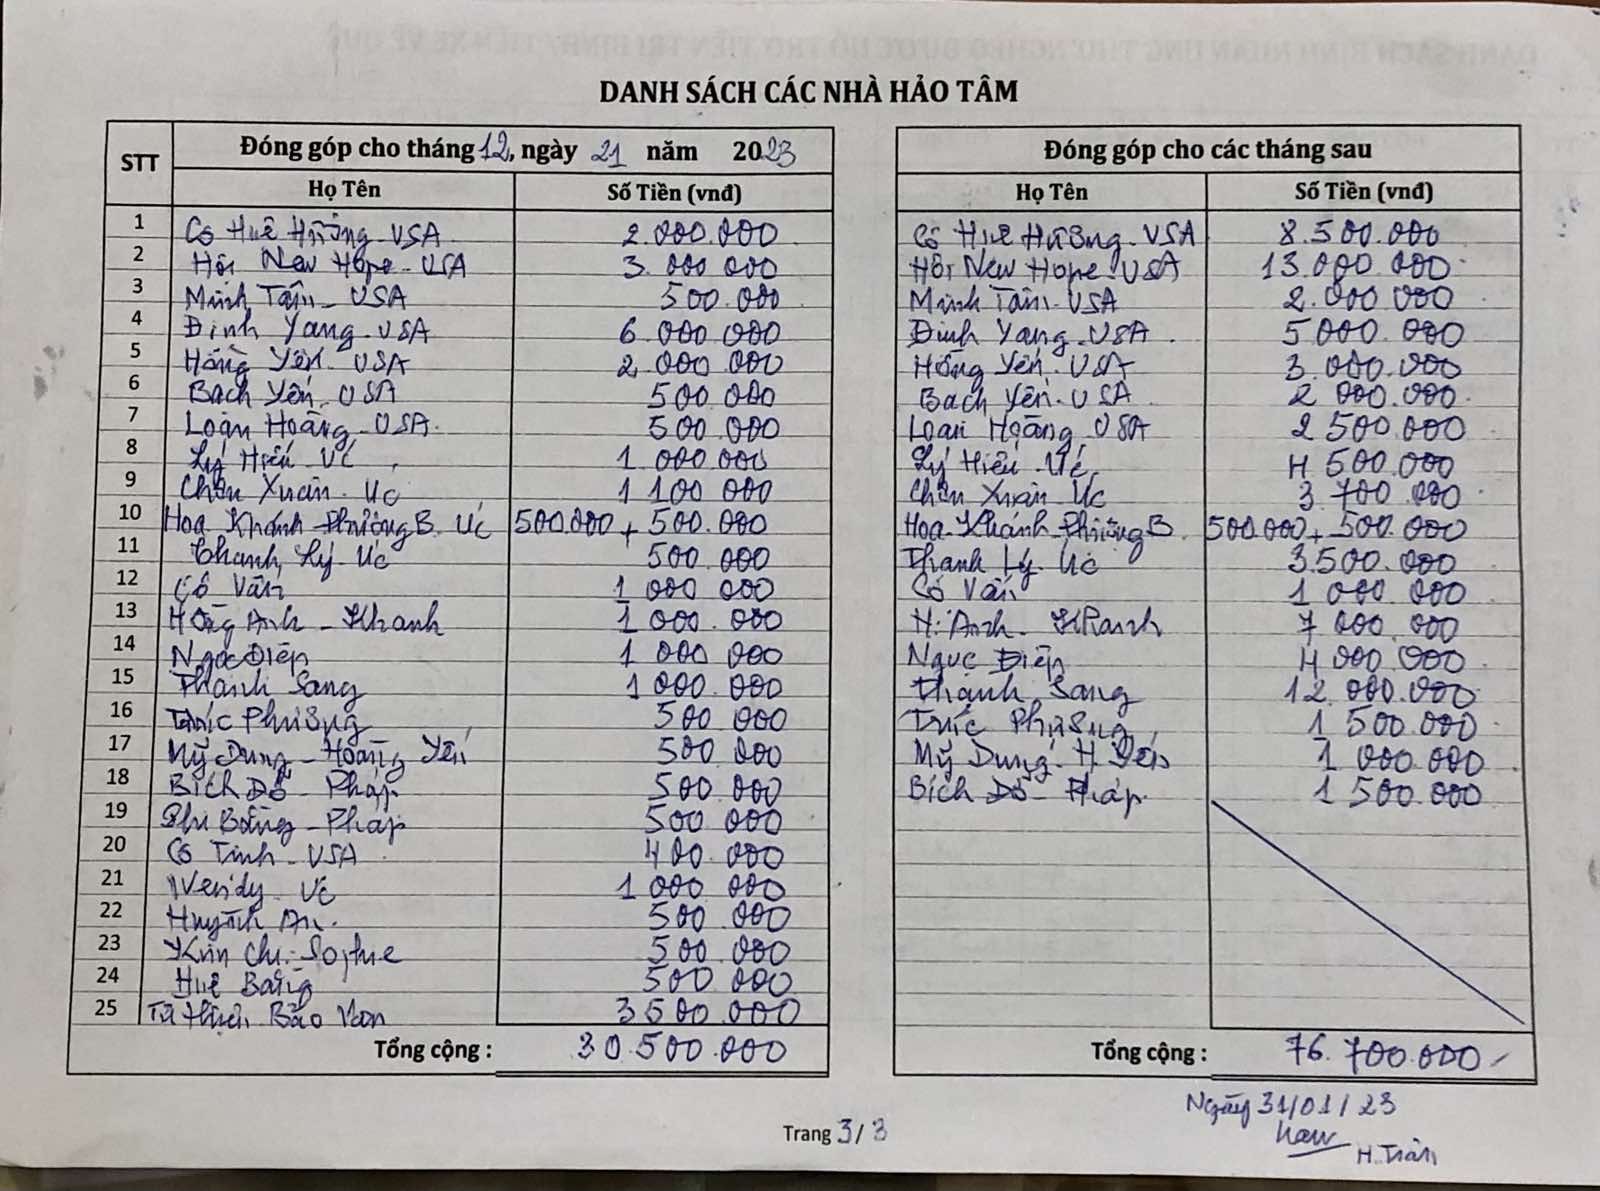 DANH SÁCH CÁC NHÀ HẢO TÂM
STT
Đóng góp cho tháng 12, ngày 21 năm 2023
Họ Tên Số Tiền (vnđ)
1 Cô Huê Hường - USA 2.000.000
2 Hội New Hope - USA 3.000.000
3 Minh Tâm - USA 500.000
4 Đinh Yang - USA 6.000.000
5 Hồng Yến - USA 2.000.000
6 Bạch Yến - USA 500.000
7 Loan Hoàng - USA 500.000
8 Lý Hiếu - Úc 1 000.000
9 Chân Xuân - Úc 1 100 000
10 Hoa Khánh Phường B. Úc 500.000 + 500.000
11 Thanh Lý - Úc 500.000
12 Cô Vân 1 000 000
13 Hồng Anh - Khanh 1 000.000
14 Ngọc Điệp 1 000 000
15 Thanh Sang 1 000.000
16 Trúc Phương 500 000
17 Mỹ Dung - Hoàng Yến 500.000
18 Bích Đỗ - Pháp 500.000
19 Phi Bằng - Pháp 500 000
20 Cô Tinh - USA 400.000
21 Wendy - Úc 1 000.000
22 Huỳnh An 500.000
23 Kim Chi - Sophie 500 000
24 Huê Bằng 500.000
25 Từ thiện Bảo Von 3 500.000
Tổng cộng : 30.500.000
Đóng góp cho các tháng sau
Họ Tên Số Tiền (vnđ)
Cô Huê Hường - USA 8.500.000
Hội New Hope - USA 13.000.000
Minh Tâm - USA 2.000.000
Đinh Yang - USA 5.000.000
Hồng Yến - USA 3.000.000
Bạch Yến - USA 2 000.000
Loan Hoàng - USA 2 500.000
Lý Hiếu - Úc 4 500.000
Chân Xuân - Úc 3.700.000
Hoa Khánh Phường B. 500.000 + 500.000
Thanh Lý - Úc 3.500.000
Cô Vân 1 000 000
H. Anh - Khanh 7 000.000
Ngọc Điệp 4 000.000
Thanh Sang 12.000.000
Trúc Phương 1 500.000
Mỹ Dung - H. Yến 1 000.000
Bích Đỗ - Pháp 1 500.000
Tổng cộng : 76.700.000
Trang 3/3
Ngày 31/01/23
H. Trân